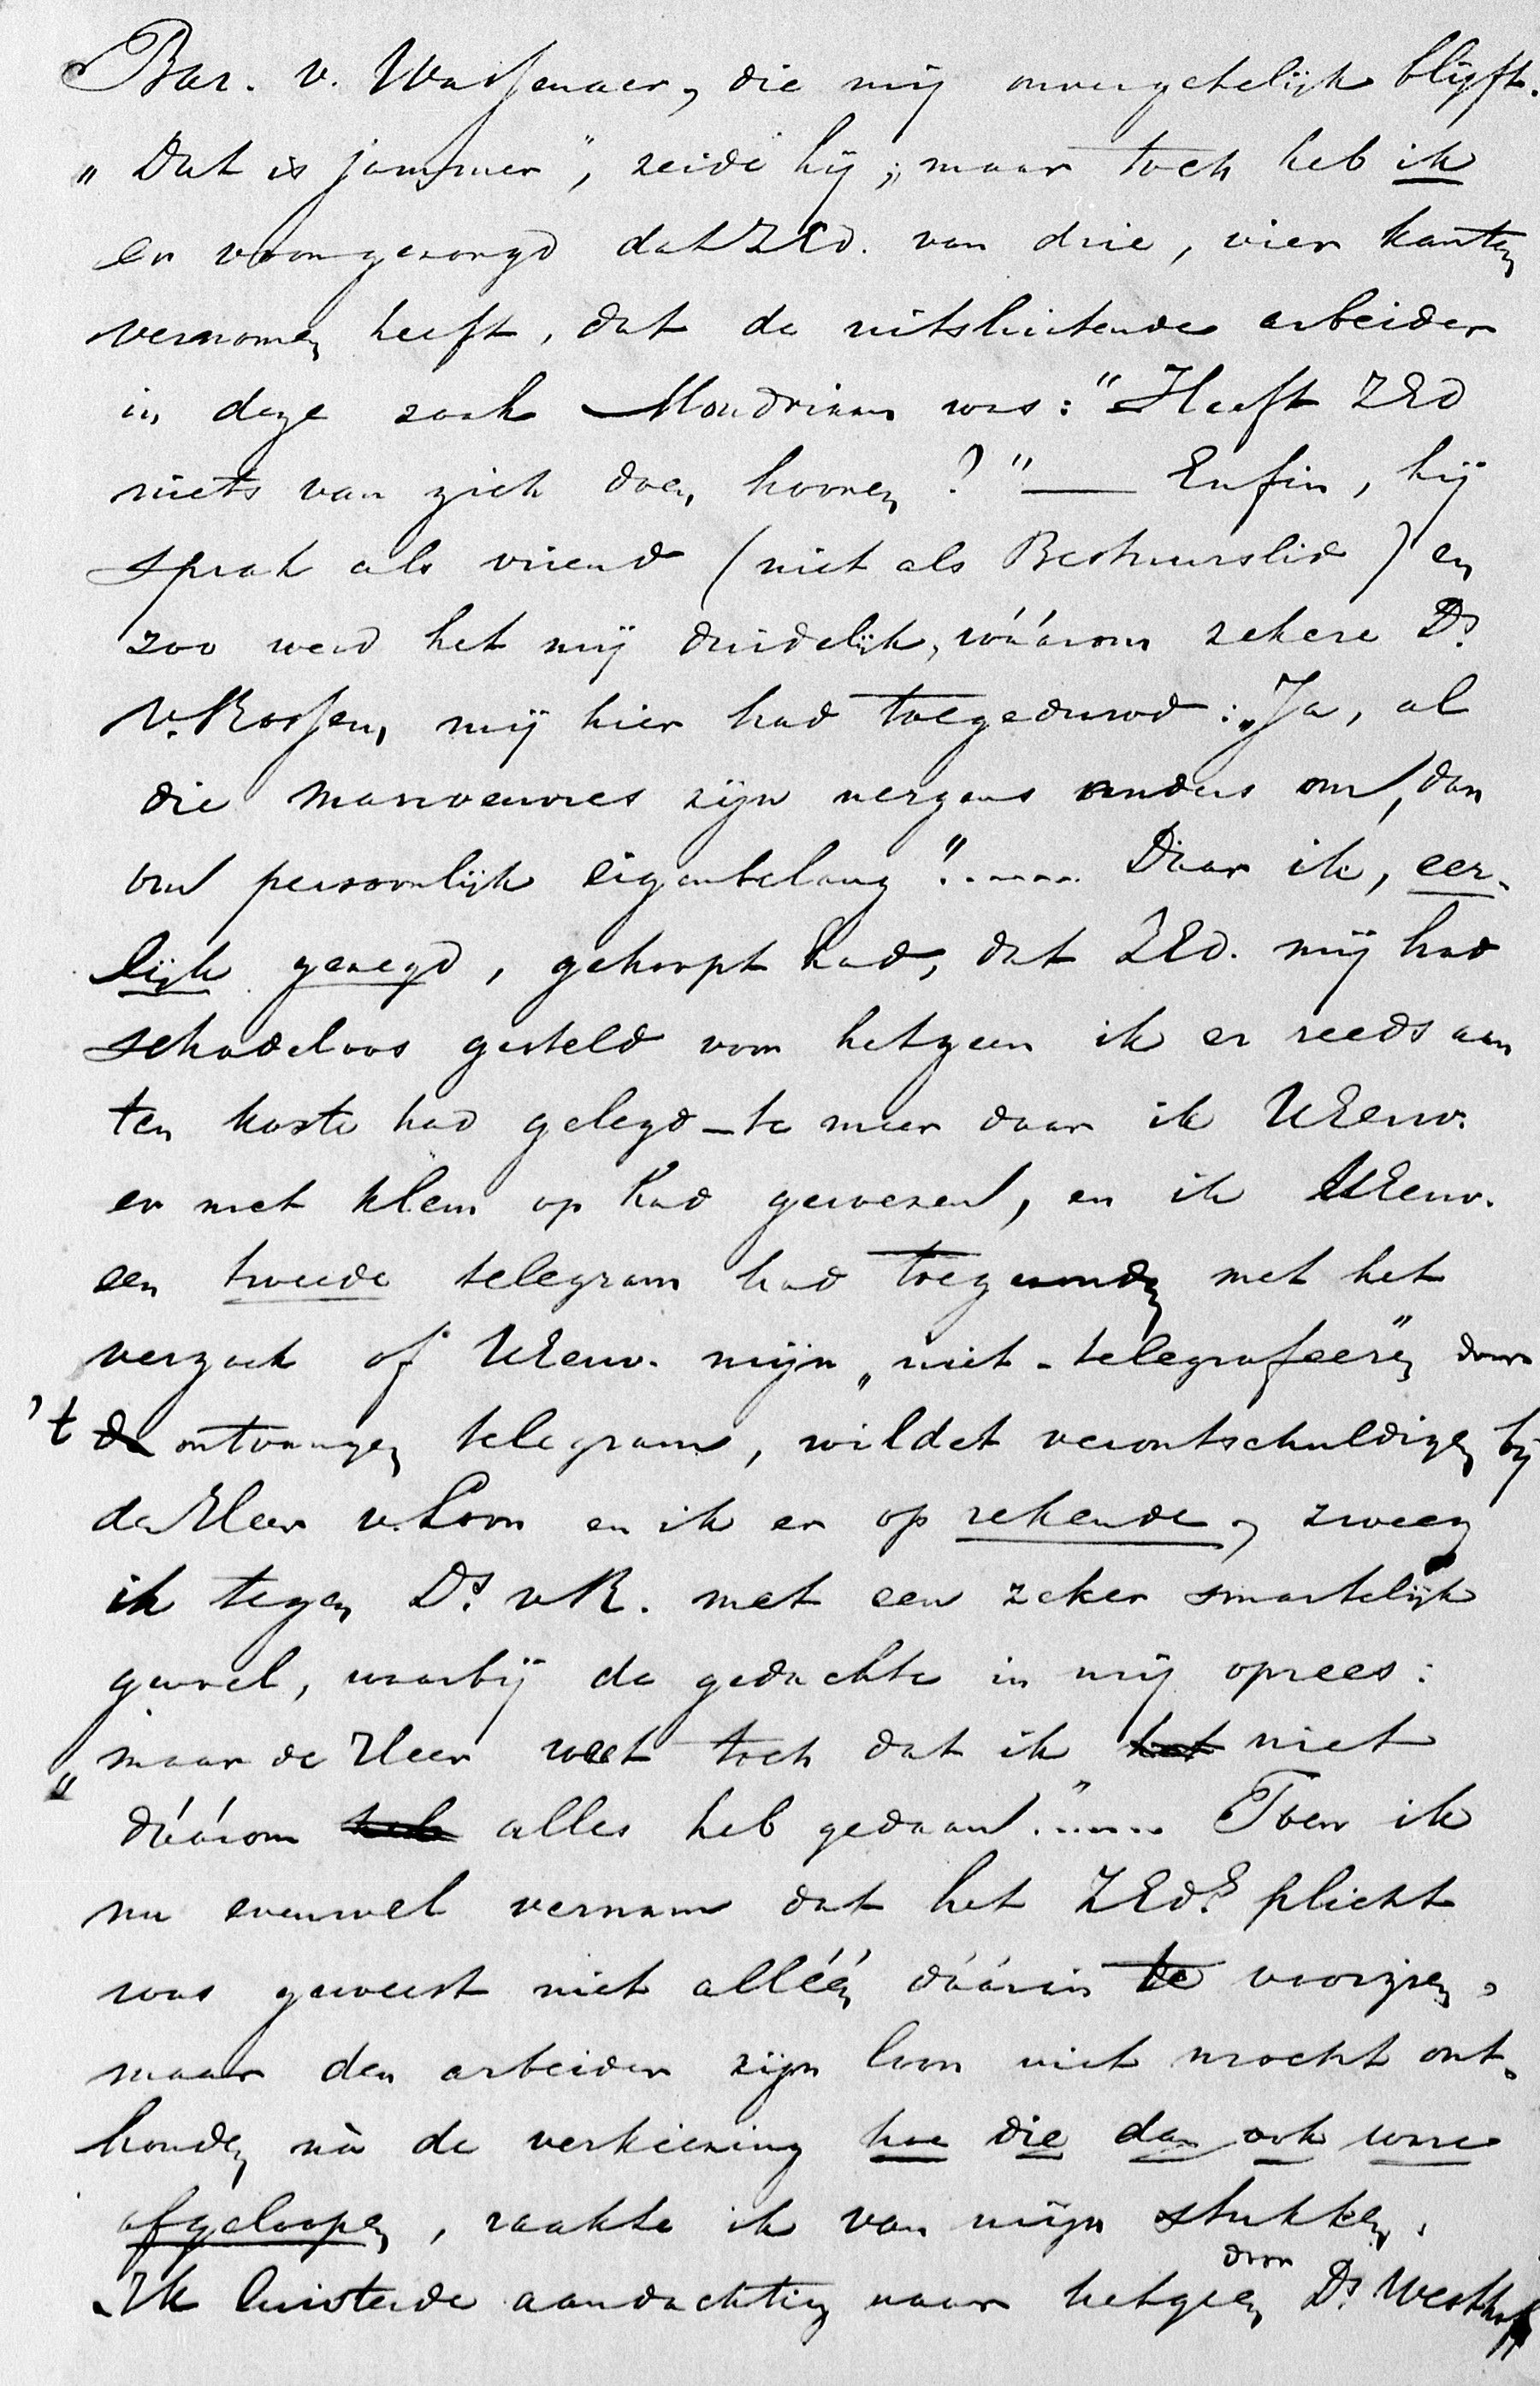 Bar. v. Wassenaer, die mij onvergetelijk blijft.
„Dat is jammer", zeide hij; „maar toch heb ik
er voor gezorgd dat ZEd. van drie, vier kanten
vernomen heeft, dat de uitsluitende arbeider
in deze zaak Mondriaan was: "Heeft ZEd
niets van zich doen hooren?" — Enfin, hij
sprak als vriend (niet als Bestuurslid) en
zoo werd het mij duidelijk, wáárom zekere Ds.
v. Rossem, mij hier had toegeduwd: „Ja, al
die manoeuvres zijn nergens anders om, dan
om persoonlijk eigenbelang!"..... Daar ik, eer-
lijk gezegd, gehoopt had, dat ZEd. mij had
schadeloos gesteld voor hetgeen ik er reeds aan
ten koste had gelegd – te meer daar ik UEerw.
er met klem op had gewezen, en ik UEerw.
een tweede telegram had toegezonden met het
verzoek of UEerw. mijn „niet-telegrafeeren" door
't ontvangen telegram, wildet verontschuldigen bij
de Heer v. Loon en ik er op rekende, zweeg
ik tegen Ds. v R. met een zeker smartelijk
gevoel, waarbij de gedachte in mij oprees:
„maar de Heer weet toch dat ik niet
dáárom alles heb gedaan."..... Toen ik
nu evenwel vernam dat het ZEds. plicht
was geweest niet alléén dáárin te voorzien,
maar den arbeider zijn loon niet mocht ont-
houden ná de verkiezing hoe die dan ook ware
afgeloopen, raakte ik van mijn stukken.
Ik luisterde aandachtig naar hetgeen door Ds. Westhoff